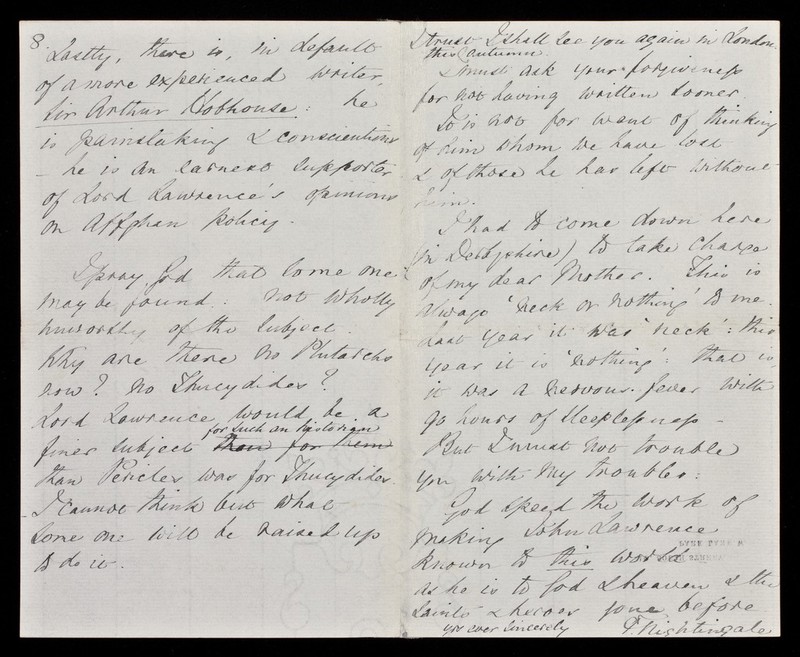 8. Lastly, there is, in default
of a more experienced writer,
Sir Arthur Hobhouse: he
is painstaking & conscientious
- he is an earnest supporter
of Lord Lawrence's opinions
on Affghan policy.
I pray God that some one
may be found: not wholly
unworthy of the subject.
Why are there no Plutarchs
now? no Thucydides?
Lord Lawrence would be a
for such an historian
finer subject than for them
than Pericles was for Thucydides.
- I cannot think but what
some one will be raised up
to do it.
I trust I shall see you again in London
this autumn.
I must ask your forgiveness
for not having written sooner.
It is not for want of thinking
of him whom we have lost
& of those he has left without
him.
I had to come down here
(in Derbyshire) to take charge
of my dear Mother. This is
always 'neck or nothing' to me.
Last year it was 'neck': this
year it is 'nothing': that is,
it was a nervous fever with
90 hours of sleeplessness -
But I must not trouble
you with my troubles:
God speed the work of
making John Lawrence
known to this world
as he is to God & heaven & the
Saints & heroes gone before
yrs ever sincerely F. Nightingale